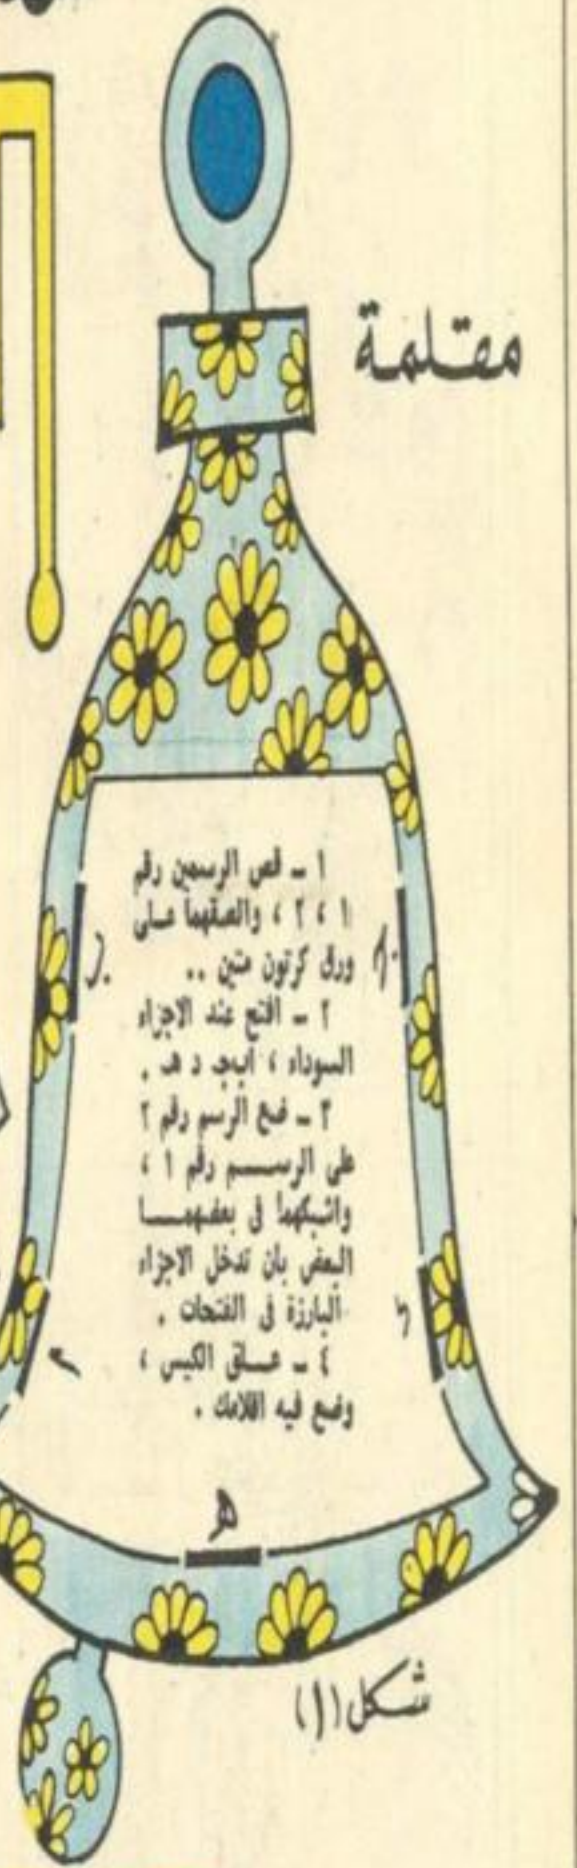 مقلمة
١ ـ قص الرسمين رقم
١ ، ٢ ، والصقهما على
ورق كرتون متين ..
٢ ـ افتح عند الاجزاء
السوداء ، ابجـ د هـ .
٣ ـ ضع الرسم رقم ٢
على الرسم رقم ١ ،
واشبكهما فى بعضهما
البعض بأن تدخل الاجزاء
البارزة فى الفتحات .
٤ ـ علق الكيس ،
وضع فيه اقلامك .
هـ
شكل (١)